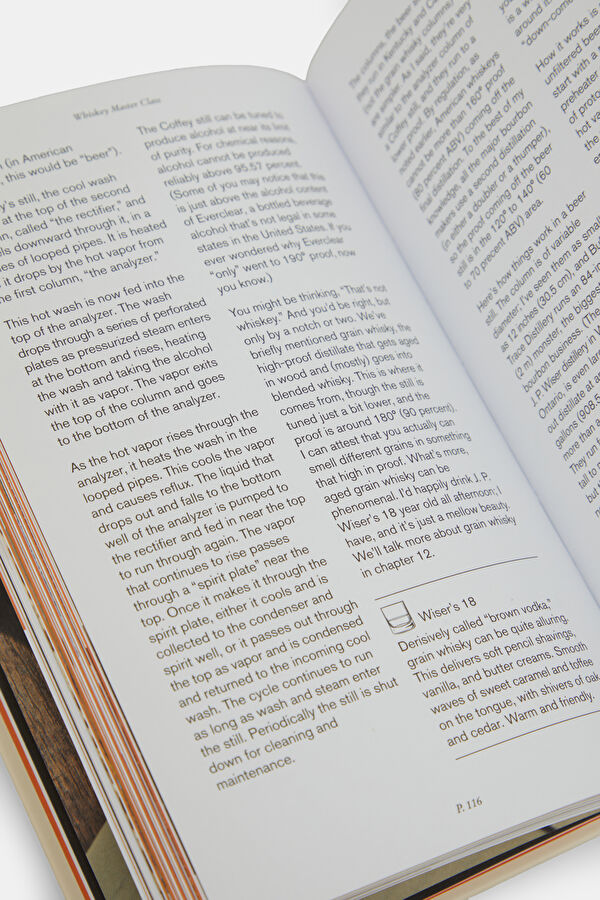 Whiskey Master Class
(in American
, this would be “beer”).
y’s still, the cool wash
at the top of the second
n, called “the rectifier,” and
ls downward through it, in a
es of looped pipes. It is heated
it drops by the hot vapor from
he first column, “the analyzer.”
This hot wash is now fed into the
top of the analyzer. The wash
drops through a series of perforated
plates as pressurized steam enters
at the bottom and rises, heating
the wash and taking the alcohol
with it as vapor. The vapor exits
the top of the column and goes
to the bottom of the analyzer.
As the hot vapor rises through the
analyzer, it heats the wash in the
looped pipes. This cools the vapor
and causes reflux. The liquid that
drops out and falls to the bottom
well of the analyzer is pumped to
the rectifier and fed in near the top
to run through again. The vapor
that continues to rise passes
through a “spirit plate” near the
top. Once it makes it through the
spirit plate, either it cools and is
collected to the condenser and
spirit well, or it passes out through
the top as vapor and is condensed
and returned to the incoming cool
wash. The cycle continues to run
as long as wash and steam enter
the still. Periodically the still is shut
down for cleaning and
maintenance.
The Coffey still can be tuned to
produce alcohol at near its limit
of purity. For chemical reasons,
alcohol cannot be produced
reliably above 95.57 percent.
(Some of you may notice that this
is just above the alcohol content
of Everclear, a bottled beverage
alcohol that’s not legal in some
states in the United States. If you
ever wondered why Everclear
“only” went to 190º proof, now
you know.)
You might be thinking, “That’s not
whiskey.” And you’d be right, but
only by a notch or two. We’ve
briefly mentioned grain whisky, the
high-proof distillate that gets aged
in wood and (mostly) goes into
blended whisky. This is where it
comes from, though the still is
tuned just a bit lower, and the
proof is around 180º (90 percent).
I can attest that you actually can
smell different grains in something
that high in proof. What’s more,
aged grain whisky can be
phenomenal. I’d happily drink J.P.
Wiser’s 18 year old all afternoon; I
have, and it’s just a mellow beauty.
We’ll talk more about grain whisky
in chapter 12.
Wiser’s 18
Derisively called “brown vodka,”
grain whisky can be quite alluring.
This delivers soft pencil shavings,
vanilla, and butter creams. Smooth
waves of sweet caramel and toffee
on the tongue, with shivers of oak
and cedar. Warm and friendly.
P. 116
The columns, the beer
they run in Kentucky and
(not the grain whisky columns)
are simpler. As I said, they’re very
similar to the analyzer column of
a Coffey still, and they run to a
lower proof. By regulation, as
noted earlier, American whiskeys
cannot be more than 160º proof
(80 percent ABV) coming off the
final distillation. To the best of my
knowledge, all the major bourbon
makers use a second distillation
(in either a doubler or a thumper),
so the proof coming off the beer
still is in the 120º to 140º (60
to 70 percent ABV) area.
Here’s how things work in a beer
still. The column is of variable
diameter. I’ve seen them as small
as 12 inches (30.5 cm), and
Trace Distillery runs an 84-in
(2 m) monster, the biggest
bourbon business. The
J.P. Wiser distillery in W
Ontario, is even large
out distillate at
gallons (908.5
more than a
They run f
tall to
is a w
around it
“down-come
How it works is
unfiltered beer
start with a
preheater
of proto
hot va
the
en